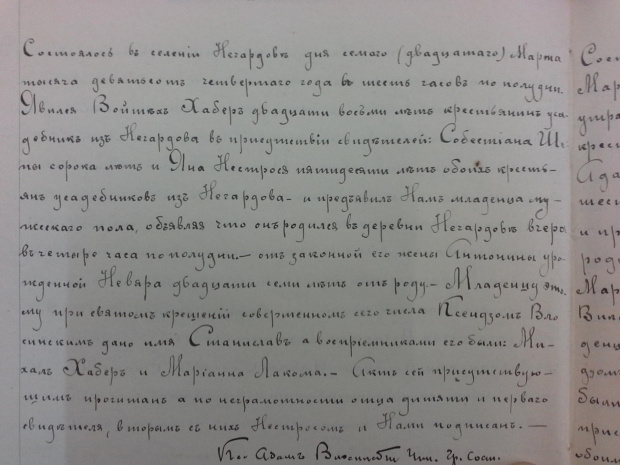 Состоялось въ селеніи Негардовѣ дня седмого (двадцатаго) Марта
тысяча девятьсотъ четвертаго года въ шесть часовъ по полудни.
Явился Войтѣхъ Хаберъ двадцати восьми лѣтъ крестьянинъ уса-
дебникъ изъ Негардова въ присутствіи свидѣтелей: Собестіана
мы сорока лѣтъ и Яна Нестрося пятидесяти лѣтъ обоихъ кресть-
янъ усадебниковъ изъ Негардова - и предъявилъ Намъ младенца му-
жескаго пола, объявляя что онъ родился въ деревни Негардовѣ вчера
въ четыре часа по полудни. - отъ законной его жены Антонины уро-
жденной Невяра двадцати семи лѣтъ отъ роду. - Младенцу это-
му при святомъ крещеніи совершенномъ сего числа Ксендзомъ Вло-
синскимъ дано имя Станиславъ а воспріемниками его были: Ми-
халъ Хаберъ и Маріанна Лакома. - Актъ сей присутствую-
щимъ прочитанъ а по неграмотности отца дитяти и перваго
свидѣтеля, вторымъ съ нихъ Нестросомъ и Нами подписанъ. -
Кс. Адамъ Гр. Сост.